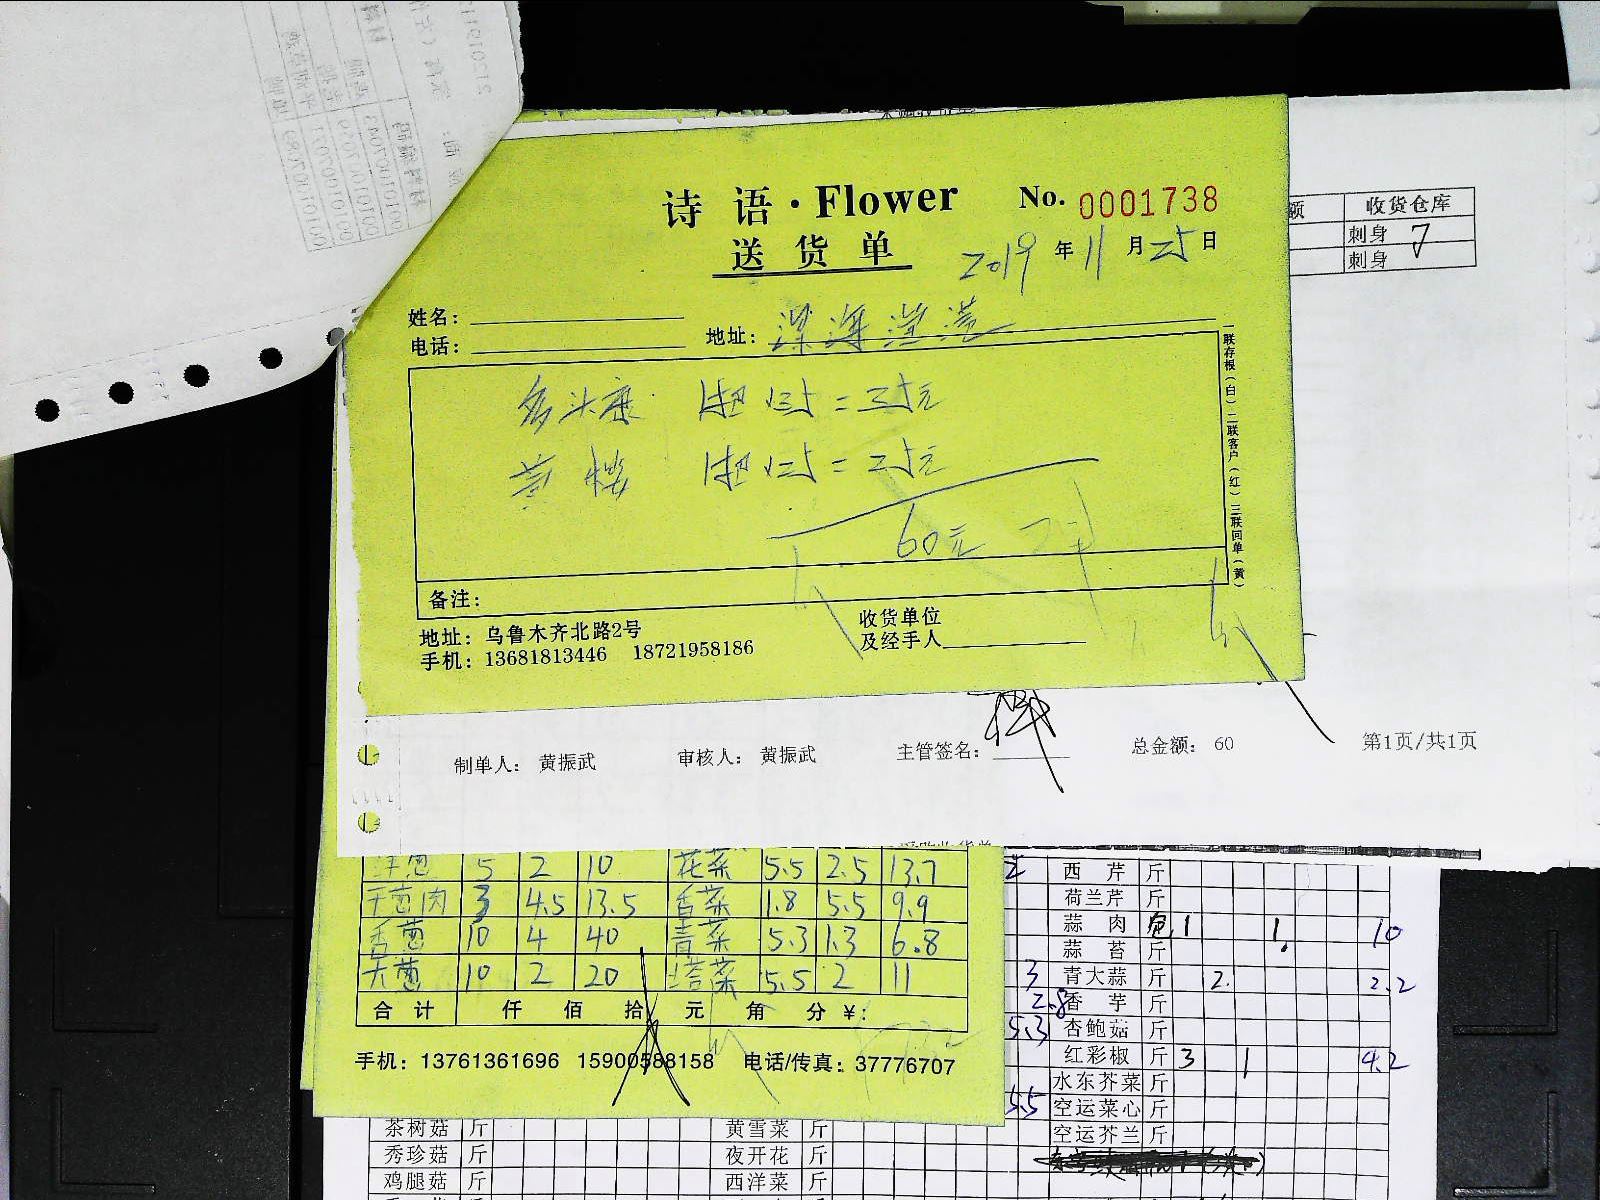 诗 语·Flower No. 0001738
送 货 单 2019 年 11 月 25 日
姓名：
电话：
地址：深海渔港
1把 x35 = 35元
1把 x25 = 25元
60元
备注：
地址：乌鲁木齐北路2号
手机：13681813446 18721958186
收货单位
及经手人
一联存根（白）二联客户（红）三联回单（黄）
额 收货仓库
刺身
刺身
制单人： 黄振武 审核人： 黄振武 主管签名： 总金额： 60 第1页/共1页
洋葱 5 2 10 花菜 5.5 2.5 13.7
干葱肉 3 4.5 13.5 香菜 1.8 5.5 9.9
香葱 10 4 40 青菜 5.3 1.3 6.8
大葱 10 2 20 塔菜 5.5 2 11
合 计 仟 佰 拾 元 角 分 ¥：
手机：13761361696 15900588158 电话/传真：37776707
西 芹 斤
荷兰芹 斤
蒜 肉 1 1. 10
蒜 苔 斤
3 青大蒜 斤 2. 2.2
2.8 香 芋 斤
5.3 杏鲍菇 斤
红彩椒 斤 3 1 4.2
水东芥菜 斤
5.5 空运菜心 斤
空运芥兰 斤
茶树菇 斤 黄雪菜 斤
秀珍菇 斤 夜开花 斤
鸡腿菇 斤 西洋菜 斤